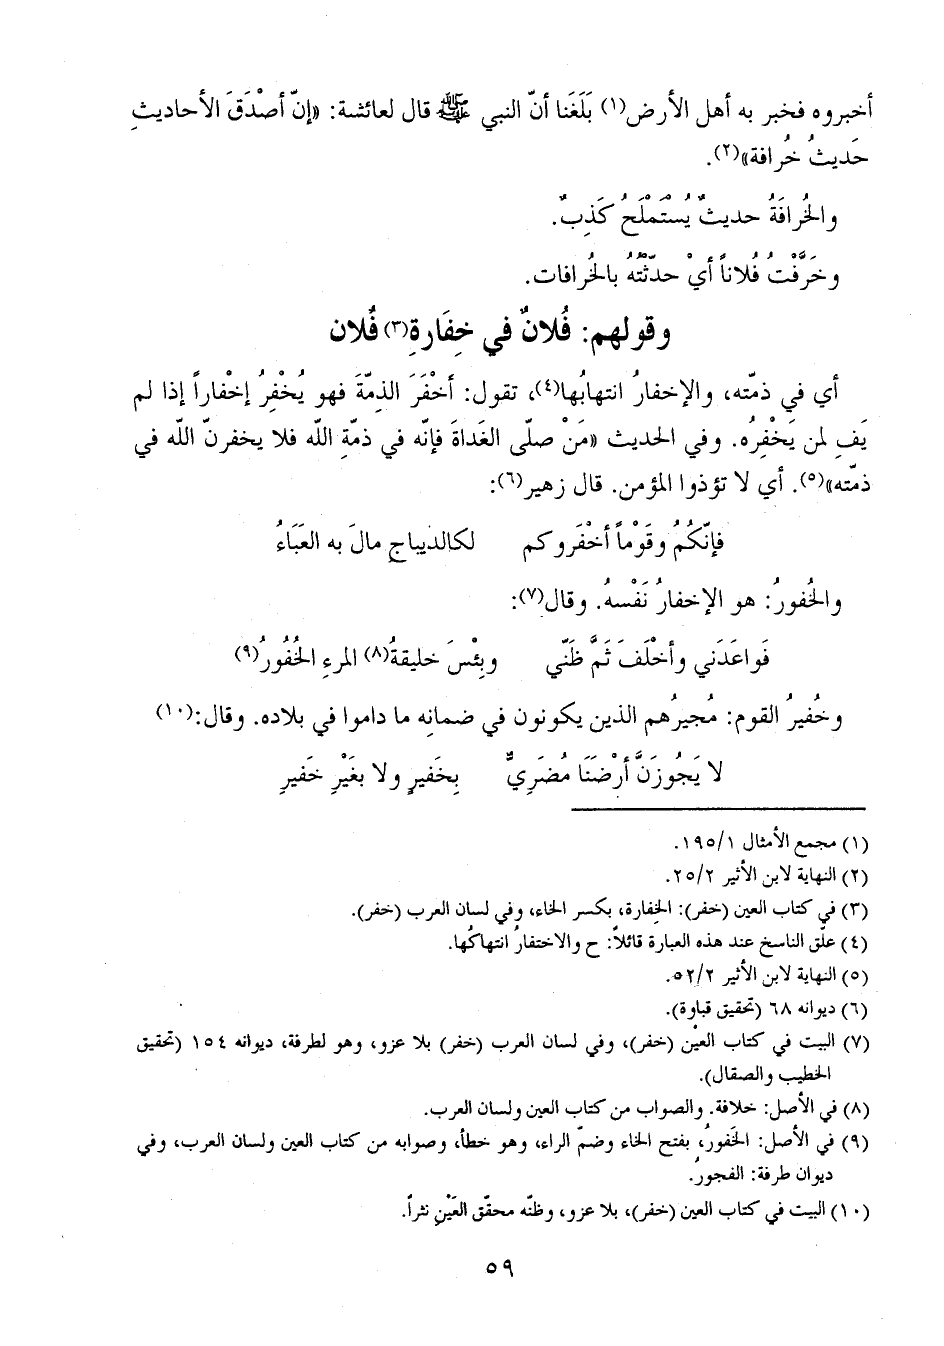 أخبروه فخبر به أهل الأرض(١) بَلَغَنا أنّ النبي ﷺ قال لعائشة: «إنّ أصْدَقَ الأحاديثِ
حَديثُ خُرافة»(٢).
والخُرافَةُ حديثٌ يُسْتَمْلَحُ كَذِبٌ.
وخَرَّفْتُ فُلاناً أيْ حدّثْتُهُ بالخُرافات.
وقولهم: فُلانٌ في خِفَارةِ(٣) فُلان
أي في ذمّته، والإخفارُ انتهابُها(٤)، تقول: أخْفَرَ الذِمّةَ فهو يُخْفِرُ إخْفاراً إذا لم
يَفِ لمن يَخْفِرُه. وفي الحديث «مَنْ صلّى الغَداةَ فإنّه في ذمّةِ اللّه فلا يخفرنّ اللّه في
ذمّته»(٥). أي لا تؤذوا المؤمن. قال زهير(٦):
فإنّكُمُ وقَوْماً أخْفَروكم لكالديباجِ مالَ به العَبَاءُ
والخُفورُ: هو الإخفارُ نَفْسهُ. وقال(٧):
فَواعَدَني وأخْلَفَ ثَمَّ ظَنّي وبِئْسَ خليقةُ(٨) المرءِ الخُفُورُ(٩)
وخُفيرُ القوم: مُجيرُهم الذين يكونون في ضمانِه ما داموا في بلاده. وقال:(١٠)
لا يَجُوزَنَّ أرْضَنَا مُضَرِيٌّ بِخَفيرٍ ولا بغَيْرِ خَفيرِ
(١) مجمع الأمثال ١٩٥/١.
(٢) النهاية لابن الأثير ٢٥/٢.
(٣) في كتاب العين (خفر): الخِفارة، بكسر الخاء، وفي لسان العرب (خفر).
(٤) علّق الناسخ عند هذه العبارة قائلاً: ح والاختفارُ انتهاكُها.
(٥) النهاية لابن الأثير ٥٢/٢.
(٦) ديوانه ٦٨ (تحقيق قباوة).
(٧) البيت في كتاب العيْن (خفر)، وفي لسان العرب (خفر) بلا عزو، وهو لطرفة، ديوانه ١٥٤ (تحقيق
الخطيب والصقال).
(٨) في الأصل: خلافة. والصواب من كتاب العين ولسان العرب.
(٩) في الأصل: الخَفورُ، بفتح الخاء وضمّ الراء، وهو خطأ، وصوابه من كتاب العين ولسان العرب، وفي
ديوان طرفة: الفجورُ.
(١٠) البيت في كتاب العين (خفر)، بلا عزو، وظنّه محقّق العَيْنِ نثراً.
٥٩